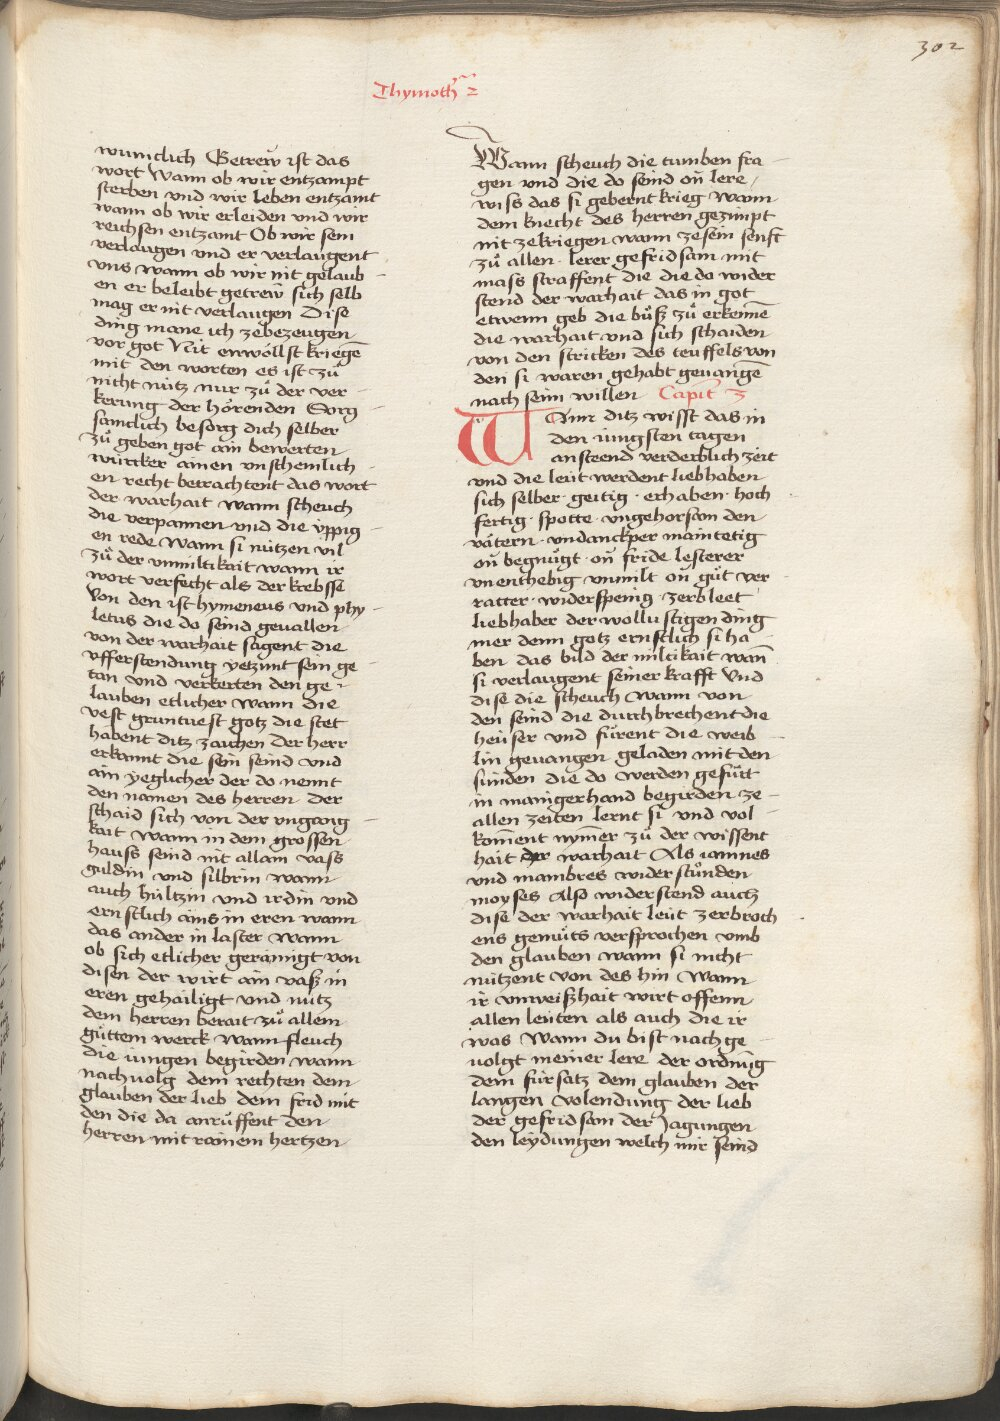 302
Thymoth 2
wunclich Getrew ist das
wort Wann ob wir entzampt
sterben vnd wir leben entzamt
wann ob wir erleiden vnd wir
reichsen entzamt Ob wir sein
verlaugen vnd er verlaugent
vns wann ob wir nit gelaub-
en er beleibt getrew sich selb
mag er nit verlaugen Dise
ding mane ich zebezeugen
vor got Nit enwöllst kriegē
mit den worten es ist zů
nicht nütz nur zů der ver-
kerung der hörenden Sorg-
samclich besorg dich selber
zů geben got ain bewerten
würcker ainen vnschemlich-
en recht betrachtent das wort
der warhait wann scheuch
die verpannen vnd die yppig-
en rede Wann si nützen vil
zů der vnmiltikait wann ir
wort verfecht als der krebsse
Von den ist hymeneus vnd phy-
letus die do seind geuallen
von der warhait sagent die
vfferstendung yetzunt sein ge-
tan vnd verkerten den ge-
lauben etlicher wann die
vest gruntuest gotz die stet
habent ditz zaichen Der herr
erkannt die sein seind vnd
ain yeglicher der do nennt
den namen des herren der
schaid sich von der vngang-
kait wann in dem grossen
hauss seind nit allain vass
guldin vnd silbrin wann
auch hültzin vnd irdin vnd
ernstlich ains in eren wann
das ander in laster wann
ob sich etlicher gerainigt von
disen der wirt ain vaß in
eren gehailigt vnd nutz
dem herren berait zů allem
gůttem werck wann fleuch
die iungen begirden wann
nachuolg dem rechten dem
glauben der lieb dem frid mit
den die da anrůffent den
herren mit rainem hertzen
Wann scheuch die tumben fra-
gen vnd die do seind on lere
wiss das si gebernt krieg wann
dem knecht des herren gezimpt
nit zekriegen wann zesein senft
zů allen lerer gefridsam mit
mass straffent die die do wider
stend der warhait das in got
etwenn geb die bůß zů erkennē
die warhait vnd sich schaiden
von den stricken des teuffels von
den si waren gehabt geuangē
nach seim willen Capit 3
Wann ditz wisst das in
den iungsten tagen
ansteend verderblich zeit
vnd die leüt werdent liebhaben
sich selber · geitig · erhaben · hoch
fertig · spotte · vngehorsam den
vätern · vndanckper maintetig
on begnügt · on fride lesterer
vnenthebig vnmilt on gůt ver-
ratter · widerspenig · zerbleet
liebhaber der wollustigen ding
mer denn gotz ernstlich si ha-
ben das bild der miltikait wañ
si verlaugent seiner krafft Vnd
dise die scheuch Wann von
den seind die durchbrechent die
heüser vnd fürent die weib
lin geuangen geladen mit den
sünden die do werden gefütt
in maingerhand begirden ze-
allen zeiten lernt si vnd vol-
koment nymer zů der wissent
hait der warhait Als iamnes
vnd mambres widerstůnden
moyses Also widerstend auch
dise der warhait leüt zerbroch
ens gemüts versprochen vmb
den glauben wann si nicht
nützent von des hin Wann
ir vnweißhait wirt offenn
allen leüten als auch die ir
was Wann du bist nachge-
uolgt meiner lere der ordnūg
dem fürsatz dem glauben der
langen volendung der lieb
der gefridsam der Jagungen
den leydungen welch mir seind